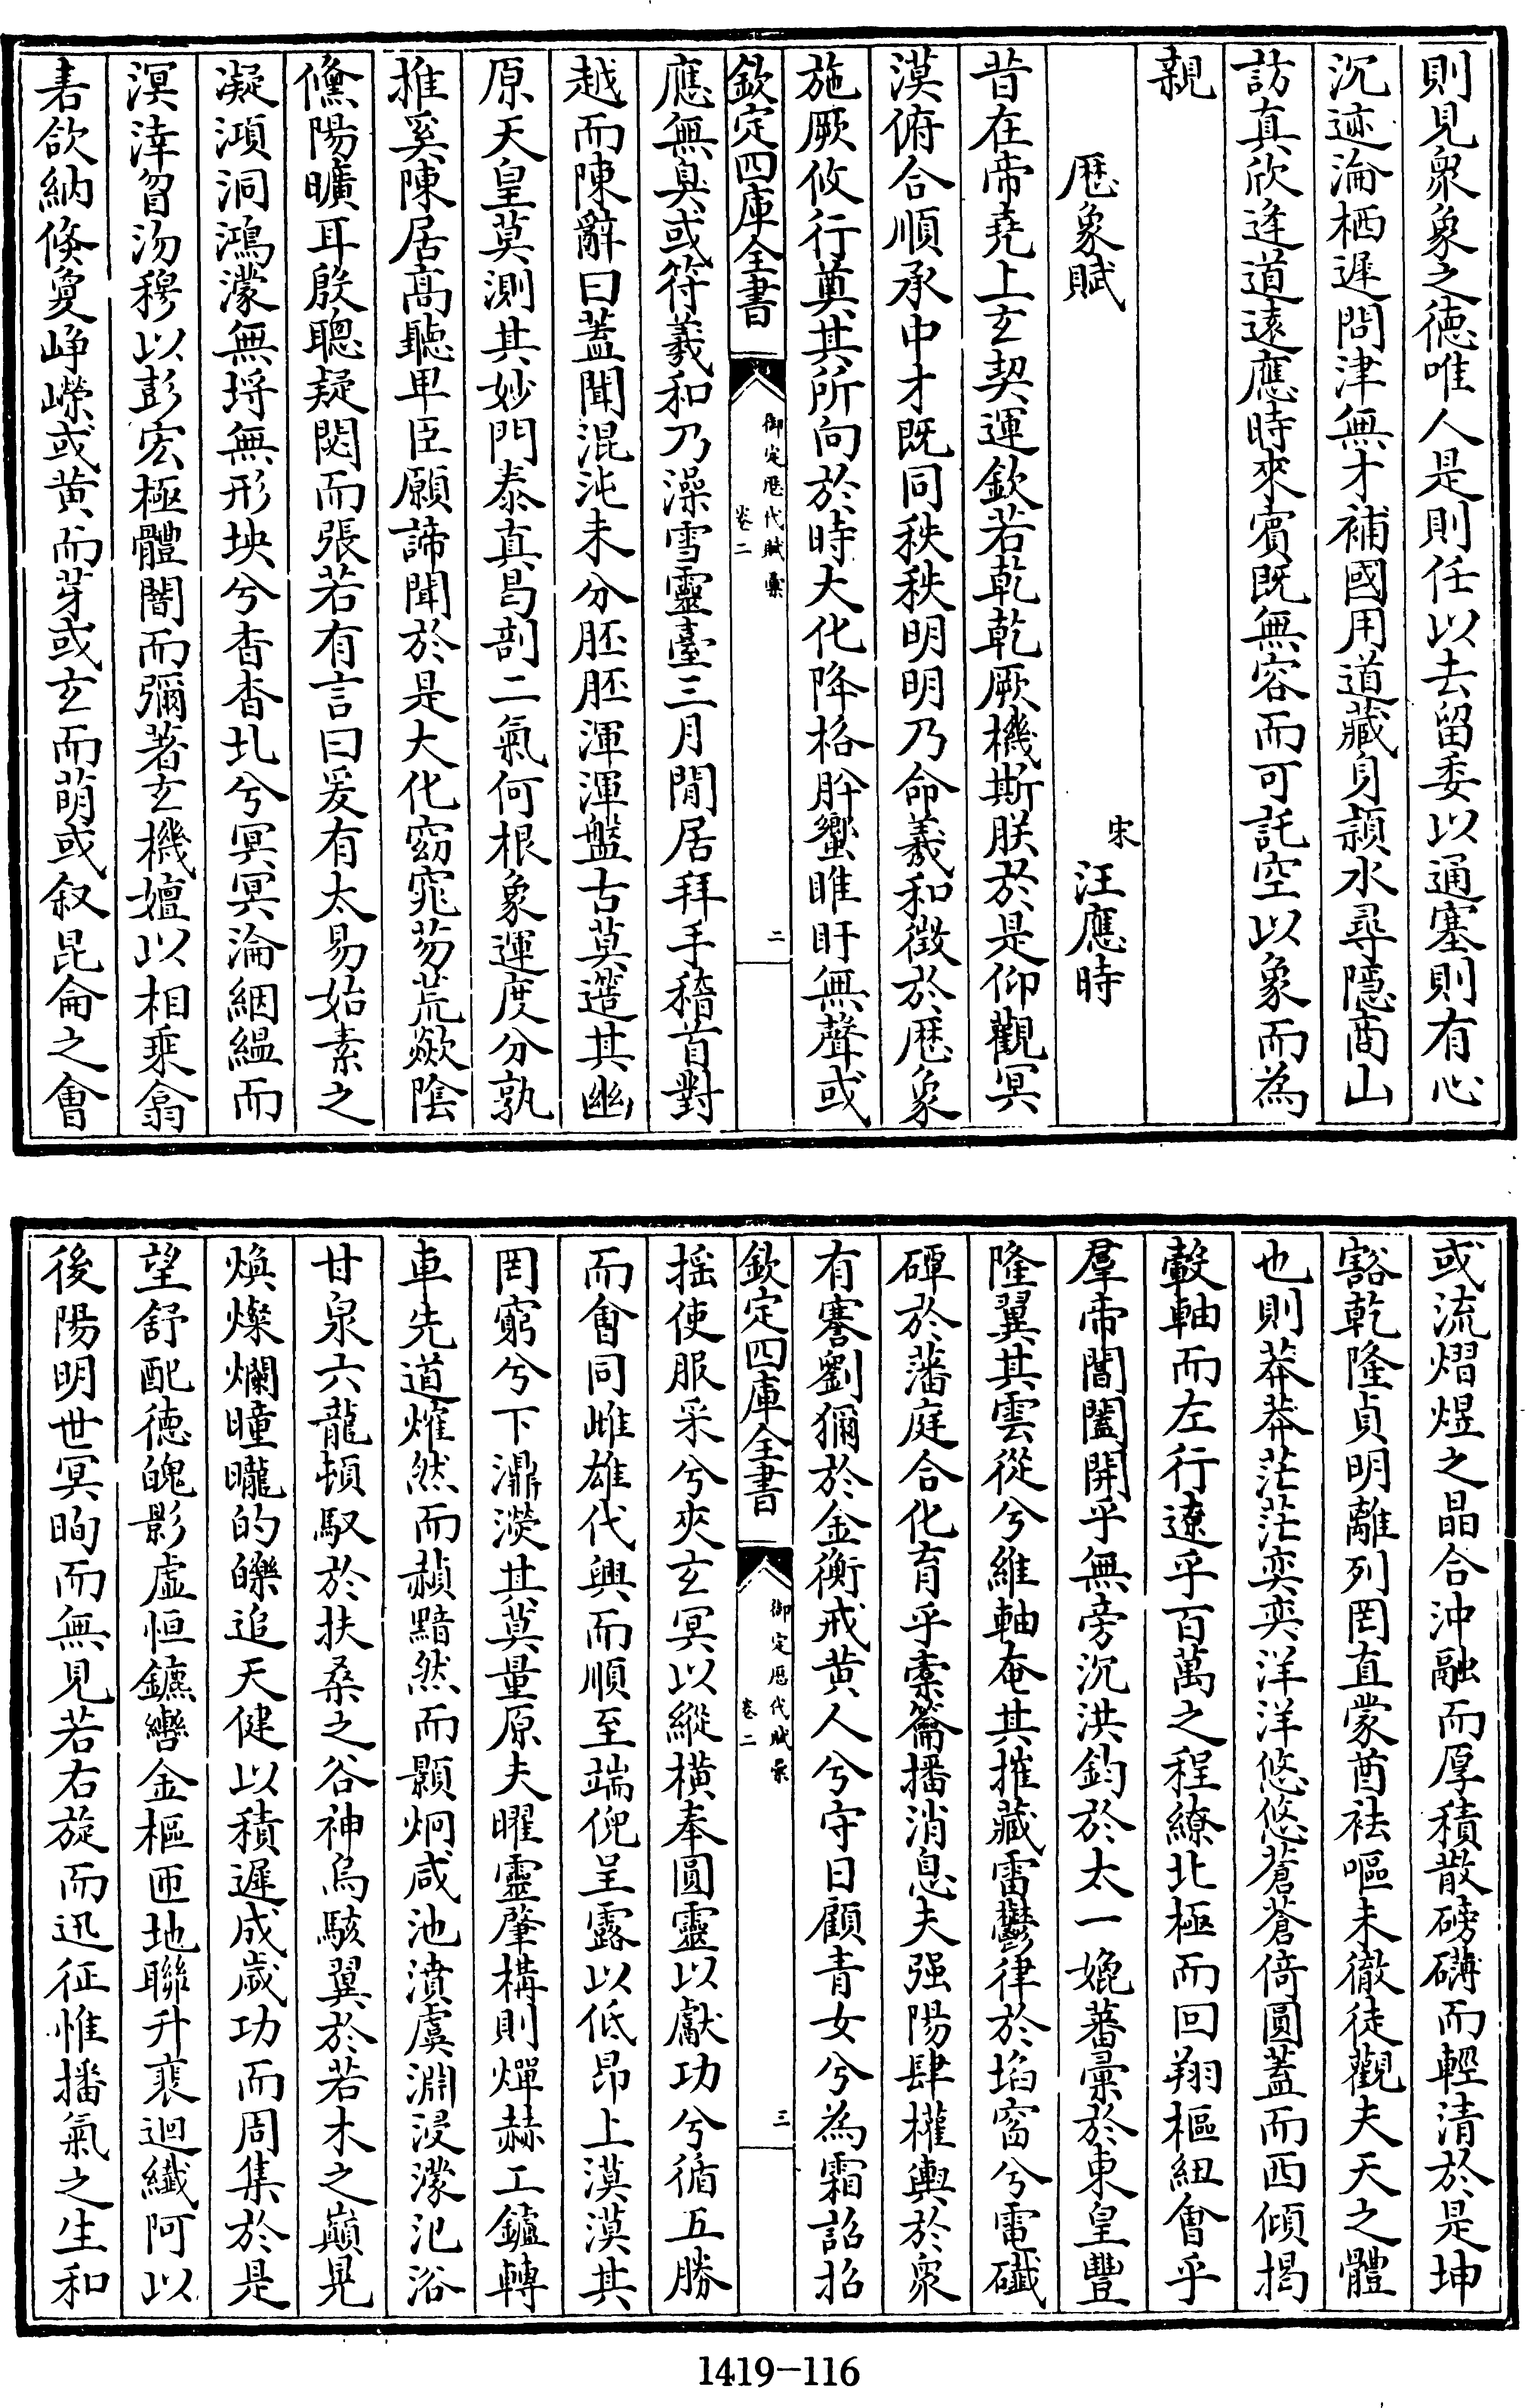 則見衆象之徳唯人是則任以去留委以通塞則有心
沉迹淪栖遲問津無才補國用道藏身潁水尋隠商山
訪真欣逢道逺應時來賓既無容而可託空以象而為
親
厯象賦
宋
汪應時
昔在帝堯上玄契運欽若乾乾厥機斯朕於是仰觀冥
漠俯合順承中才既同秩秩明明乃命羲和徴於厯象
施厥攸行奠其所向於時大化降格肸蠁睢盱無聲或
欽定四庫全書
御定厯代賦彚
卷二
二
應無臭或符羲和乃澡雪靈臺三月閒居拜手稽首對
越而陳辭曰蓋聞混沌未分胚胚渾渾盤古莫造其幽
原天皇莫測其妙門泰真曷剖二氣何根象運度分孰
推奚陳居髙聽卑臣願諦聞於是大化窈窕芴荒歘陰
儵陽曠耳殷聰疑閟而張若有言曰爰有太易始素之
凝澒洞鴻濛無埒無形坱兮杳杳圠兮冥冥淪絪緼而
溟涬㫚沕穆以彭宏極體闇而彌著玄機嬗以相乗翕
砉欱納倏敻崢嶸或黄而芽或玄而萌或叙昆侖之會
或流熠煜之晶合沖融而厚積散磅礴而輕清於是坤
豁乾隆貞明離列罔直蒙酋祛嘔未徹徒觀夫天之體
也則莽莽茫茫奕奕洋洋悠悠蒼蒼倚圓蓋而西傾揭
轂軸而左行遼乎百萬之程繚北極而回翔樞紐會乎
羣帝閶闔開乎無旁沉洪鈞於太一娩蕃彚於東皇豐
隆翼其雲從兮維軸奄其摧藏雷鬱律於㙈窗兮電䃱
磹於藩庭合化育乎橐籥播消息夫强陽肆權輿於衆
有騫劉獮於金衡戒黄人兮守日顧青女兮為霜詔招
欽定四庫全書
御定厯代賦彚
卷二
三
揺使服采兮夾玄冥以縱横奉圓靈以獻功兮循五勝
而㑹同雌雄代興而順至端倪呈露以低昂上漠漠其
罔窮兮下瀰漭其莫量原夫曜靈肇構則燀赫工鑪轉
車先道㸌然而赬黯然而顥炯咸池濆虞淵浸濛汜浴
甘泉六龍頓馭於扶桑之谷神烏駭翼於若木之巔晃
煥燦爛曈曨的皪追天健以積遲成嵗功而周集於是
望舒配徳魄影虚恒鑣轡金樞匝地聯升裵迴纎阿以
後陽明世冥眴而無見若右旋而迅征惟播氣之生和
1419-116